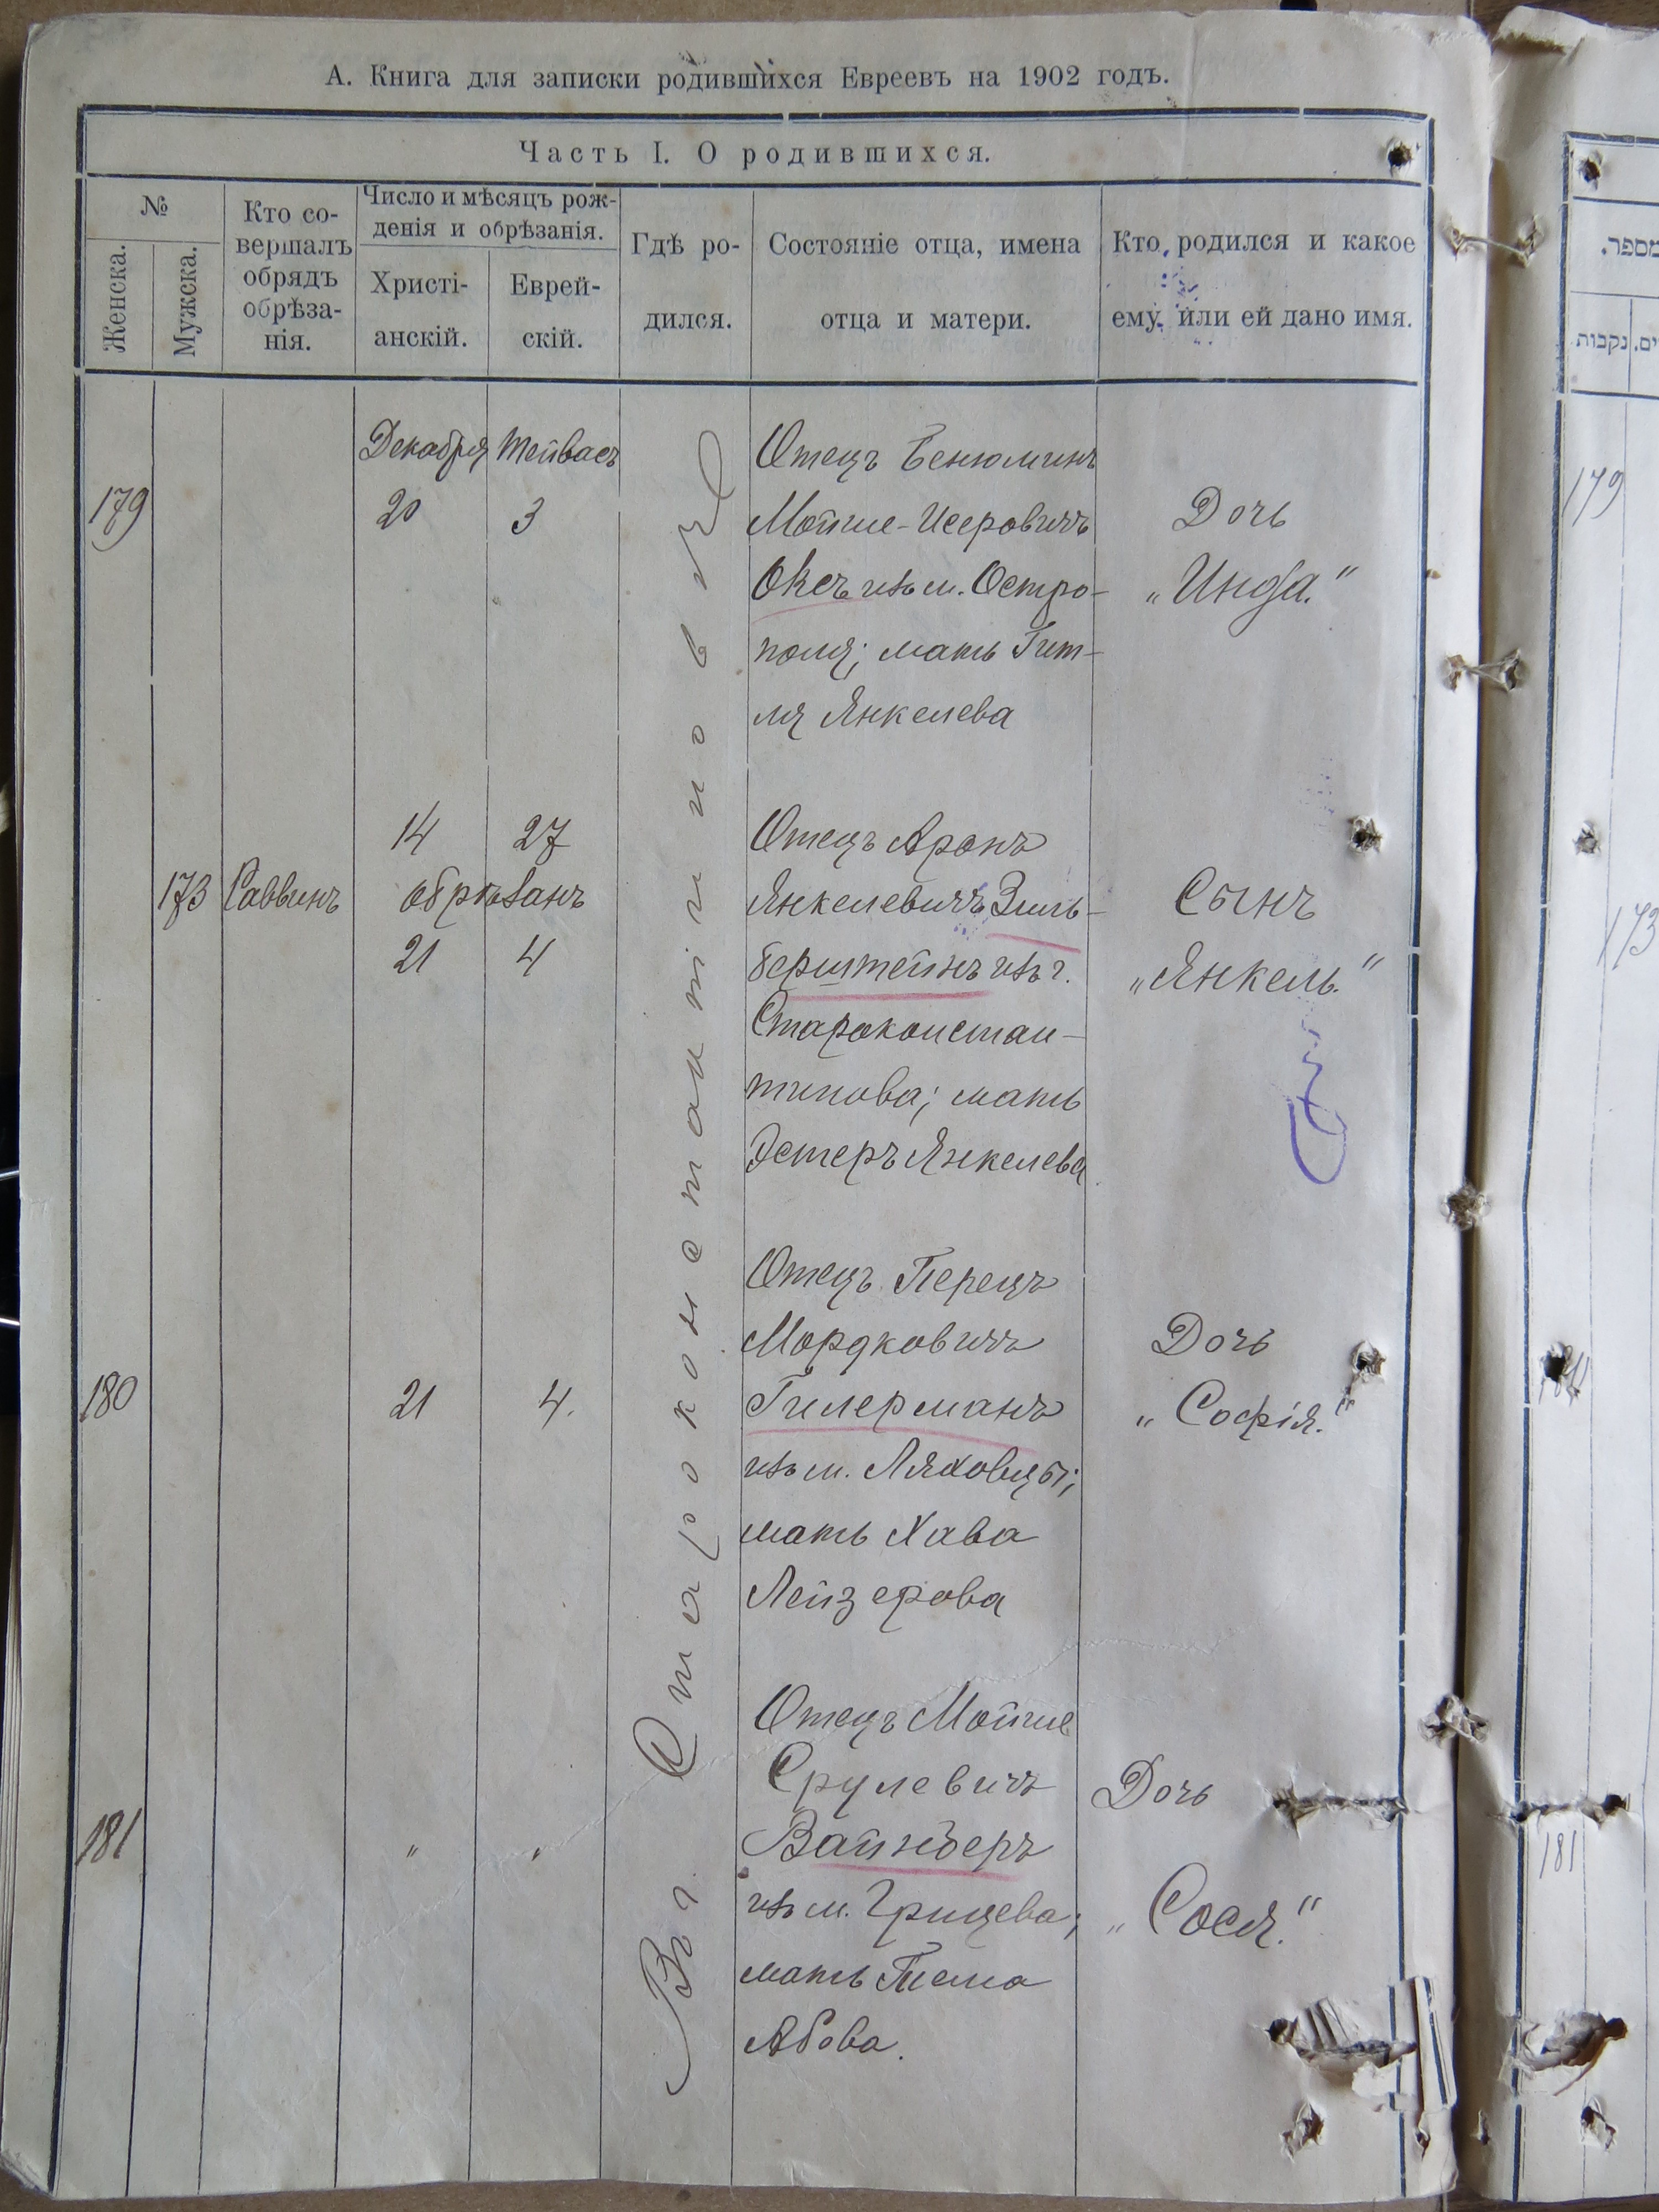 А. Книга для записки родившихся Евреевъ на 1902 годъ.
Часть I. О родившихся.
№
Женска.
Мужска.
Кто со-
вершалъ
обрядъ
обрѣза-
нія.
Число и мѣсяцъ рож-
денія и обрѣзанія.
Христі-
анскій.
Еврей-
скій.
Гдѣ ро-
дился.
Состояніе отца, имена
отца и матери.
Кто родился и какое
ему или ей дано имя.
Въ г. Староконстантиновѣ
179
Декабря Тейвасъ
20 3
Отецъ Бенюминъ
Мойше-Исеровичъ
Оксъ изъ м. Остро-
поля; мать Гит-
ля Янкелева
Дочь
„Инда."
173 Раввинъ
14 27
обрѣзанъ
21 4
Отецъ Аронъ
Янкелевичъ Зиль-
берштейнъ изъ г.
Староконстан-
тинова; мать
Эстеръ Янкелева
Сынъ
„Янкель."
180
21 4.
Отецъ Перецъ
Мордковичъ
Гилерманъ
изъ м. Ляховцы;
мать Хава
Лейзерова
Дочь
„Софія."
181
" "
Отецъ Мойше
Срулевичъ
Вайнберъ
изъ м. Грицева;
мать
Абова.
Дочь
„Сося."
מספר.
נקבות
179
173
181